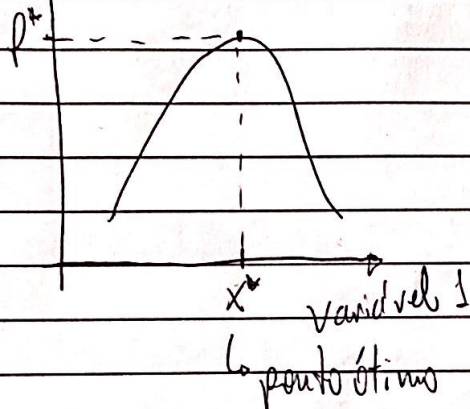 P*
X*
variável 1
↳ ponto ótimo